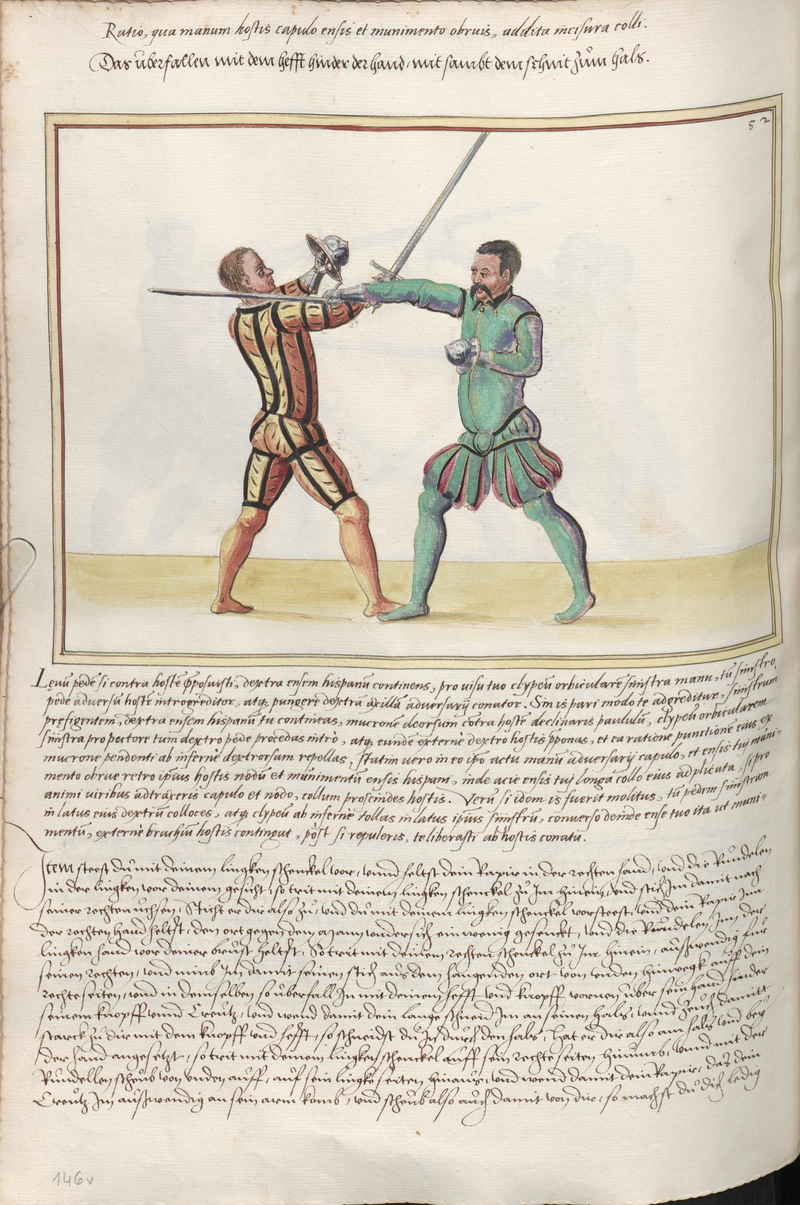 Ratio, qua manum hostis capulo ensis et munimento obruis, addita incisura colli.
Das überfallen mit dem hefft hinder der hand, mit sambt dem schnit zům hals.
82
Lęuũ pedẽ si contra hostẽ ꝓposuisti, dextra ensem hispanũ continens, pro uisu tuo clypeũ orbicularẽ sinistra manu, tũ sinistro
pede aduersũ hostẽ introgreditor, atq; pungere dextra axillã aduersarij conator. Sin is pari modo te adgreditur, sinistrum
pręfigentem, dextra ensem hispanũ tu contineas, mucronẽ deorsum cõtra hostẽ declinaris paululũ, clypeũ orbicularem
sinistra pro pectore tum dextro pede procedas intrò, atq; eundẽ externè dextro hostis ꝓponas, et ea ratione punctionẽ eius ex
mucrone pendenti ab infernè dextrorsum repellas, statim uerò in eo ipo actu manũ aduersarij capulo, et ensis tui muni-
mento obrue retro ipius hostis nodũ et munimentũ ensis hispani, inde acie ensis tui longa collo eius adplicata, si pro
animi uiribus adtraxeris capulo et nodo, collum proscindes hostis. Verũ si idem is fuerit molitus, tũ pedem sinistrum
in latus eius dextrũ colloces, atq; clypeũ ab infernè tollas in latus ipius sinistrũ, conuerso deinde ense tuo ita ut muni-
mentũ, externè brachiũ hostis contingat, põst si repuleris, te liberasti ab hostis conatu.
Item steest du mit deinem lingken schenckel vor, vnnd heltst dein Rapir in der rechten hand, vnd die Rundelen
in der lingken vor deinem gesicht, so trit mit deinem lingken schenckel zů Im hinein, vnd stich Im damit nach
seiner rechten uchsen, Sticht er dir also zů, vnd du mit deinem lingken schenckel vorsteest, vnd dein Rapir Inn
der rechten hand heltst, den ort gegen dem mann vndersich ein wenig gesenckt, vnd die Rundelen Inn der
lingken hand vor deiner brust heltst, So trit mit deinem rechten schenckel zů Im hinein, auswendig für
seinen rechten, vnd nimb Im damit seinen stich aus dem hangenden ort von vnden hinwegk auff dein
rechte seiten, vnd in demselben so überfall In mit deinem hefft vnd knopff vornen über sein hand hinder
seinem knopff vnnd Creütz, vnd wend damit dein lange schneid Im an seinen hals, vnnd zeuch damit
starck zů dir mit dem knopff vnd hefft, so schneidst du In durch den hals, hat er dir also am hals vnd bey
der hand angesetzt, so trit mit deinem lingken schenckel auff sein rechte seiten hinumb, vnnd mit der
Rundellen scheub von vnden auff, auf sein lingke seiten hinaus, vnd wend damit dein Rapir, das dein
Creütz Im auswendig an sein arm komb, vnd scheub also auch damit von dir, so machst du dich ledig
146v